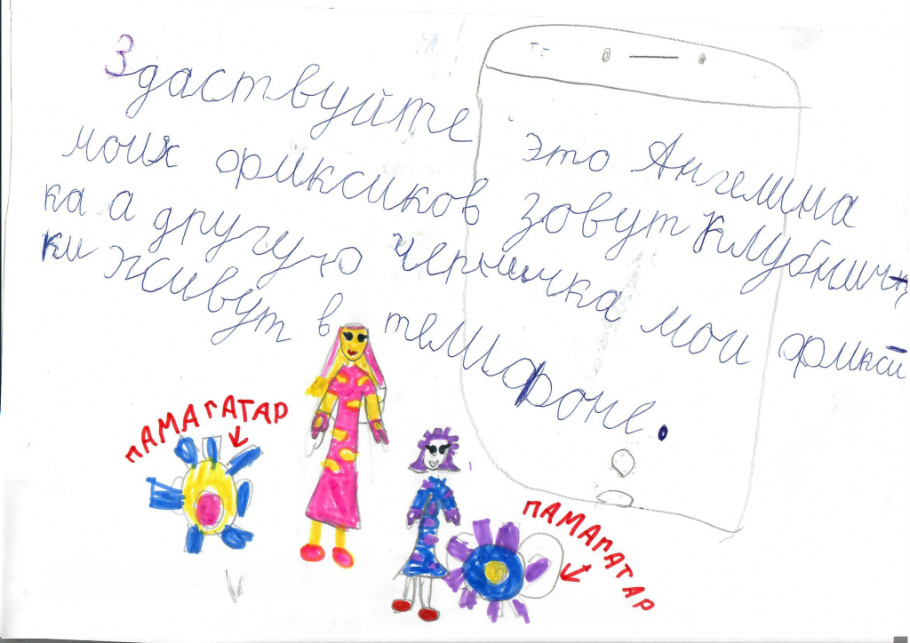 ТЕ
Здаствуйте это Ангелина
моих фиксиков зовут Клубнич-
ка а другую черничка мои фикси-
ки живут в телифоне.
ПАМАГАТАР
ПАМАГАТАР